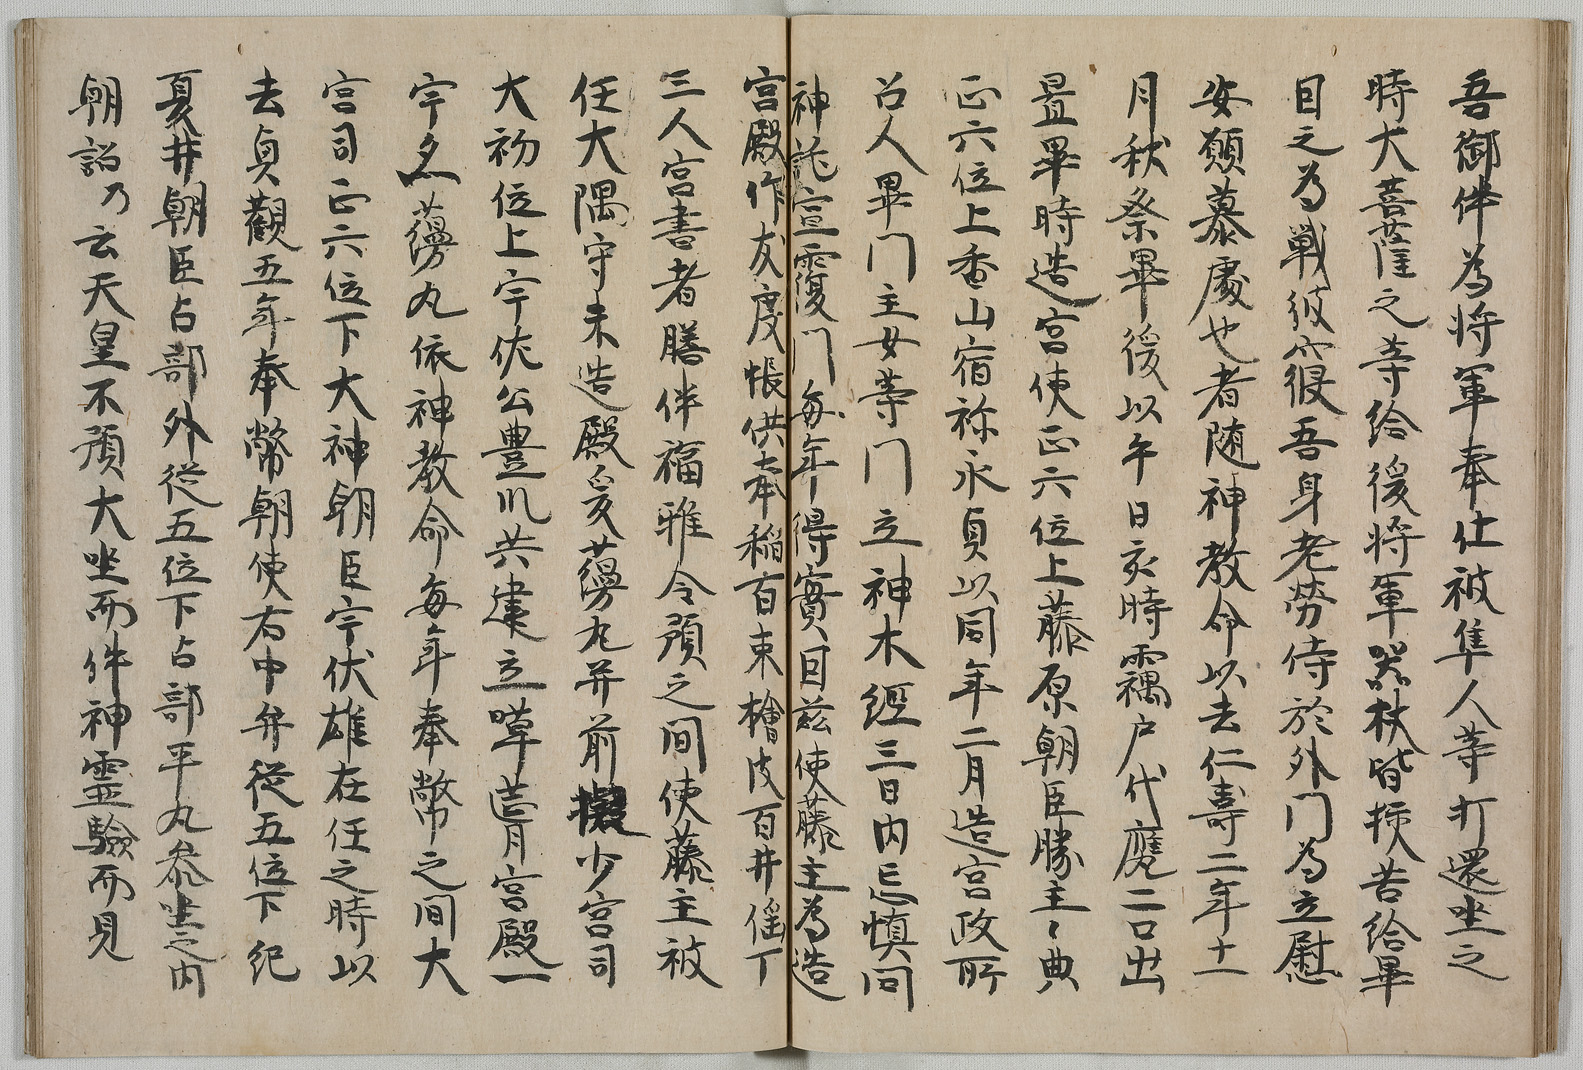 吾御伴為将軍奉仕被隼人等打還坐之
時大菩薩之等給後将軍器杖皆捄苦給畢
目之為戦彼寝吾身老労侍於外門為立慰
安願慕處也者随神教命以去仁寿二年十一
月秋祭畢後以午日亥時靏戸代麿二口出
置畢時造宮使正六位上藤原朝臣勝主〻典
正六位上香山宿祢永貞以同年二月造宮政所
召人畢門主女等門立神木経三日内忌慎同
神託宣霞門毎年得實目茲使藤主為造
宮殿作友度帳供奉稲百束檜皮百井徭丁
三人宮書者膳伴福雅令預之間使藤主被
任大隅守未造殿爰蕩丸并前擬少宮司
大初位上宇佐公豊川共建立葺造月宮殿一
宇久蕩丸依神教命毎年奉幣之間大
宮司正六位下大神朝臣宇伏雄在任之時以
去貞觀五年奉幣朝使右中弁従五位下紀
夏井朝臣占部外従五位下占部平丸参坐之内
朝詔乃云天皇不預大坐而件神霊驗而見